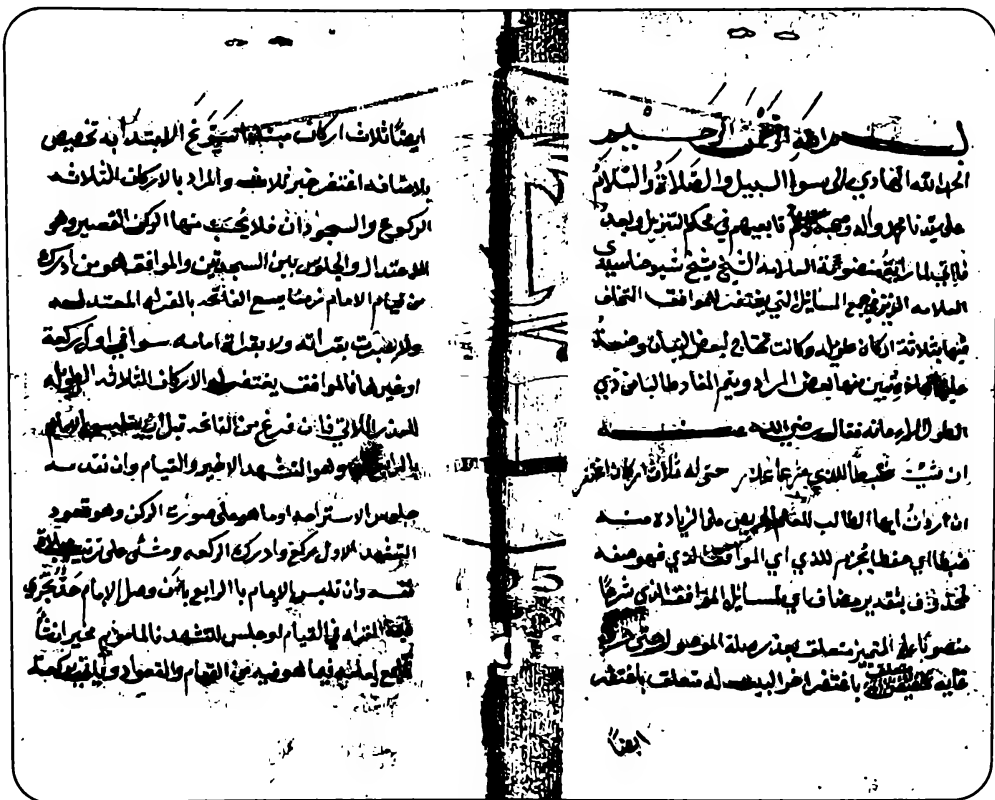 بسم الله الرحمن الرحيم
الحمد لله الهادي الى سوا السبيل والصلاة والسلام
على سيدنا محمد واله وصحبه وسلم تابعيهم في محكم التنزيل وبعد
فاني لما رايت منضومة العلامه الشيخ شيخ شيوخنا سيدي
العلامه جمع المسائل التي يغتفر للموافق التخلف
فيها بثلاثة اركان طويله وكانت تحتاج لبعض البيان وضعت
عليها تبين منها بعض المراد ويتم المفاد طالبا من ذي
الطول فقال رضي الله عنه
ان شئت ضبطا للذي شرعا عذر حتى له ثلاث اركان اغتفر
ان اردت ايها الطالب للعلم الحريص على الزياده منه
ضبطا اي حفظا بحزم للذي اي الموافق الذي فهو صفه
لمحذوف بتقدير مضاف اي لمسايل الموافق الذي شرعا
منصوبا على التميز متعلق بعذر صلة الموصول حتى
غايه باغتفر اخر البيت له متعلق باغتفر
ايضا
ايضا ثلاث اركان مبتدا تسوغ الابتدا به تخصيص
بالاضافه اغتفر خبر ثلاث والمراد بالاركان الثلاثه
الركوع والسجودان فلا يحسب منها الركن القصير وهو
الاعتدال والجلوس بين السجدتين والموافق هو من ادرك
من قيام الامام زمنا يسع الفاتحه بالقراه المعتدله
ولا عبرت بقراته ولا بقراة امامه سوا في اول ركعة
او غيرها فالموافق يغتفر له الاركان الثلاثه الطويله
للعذر الاتي فان فرغ من الفاتحه قبل
بالرابع وهو التشهد الاخير والقيام وان تقدمه
جلوس الاستراحه او ما هو على صورت الركن وهو قعود
التشهد الاول ركع وادرك الركعه ومشى على ترتيب صلاة
نفسه وان تلبس الامام بالرابع بان وصل الامام حد تجزي
القراه في القيام او جلس للتشهد فالماموم مخير ان شا
تابع امامه فيما هو فيه من القيام والقعود وياتي بركعة